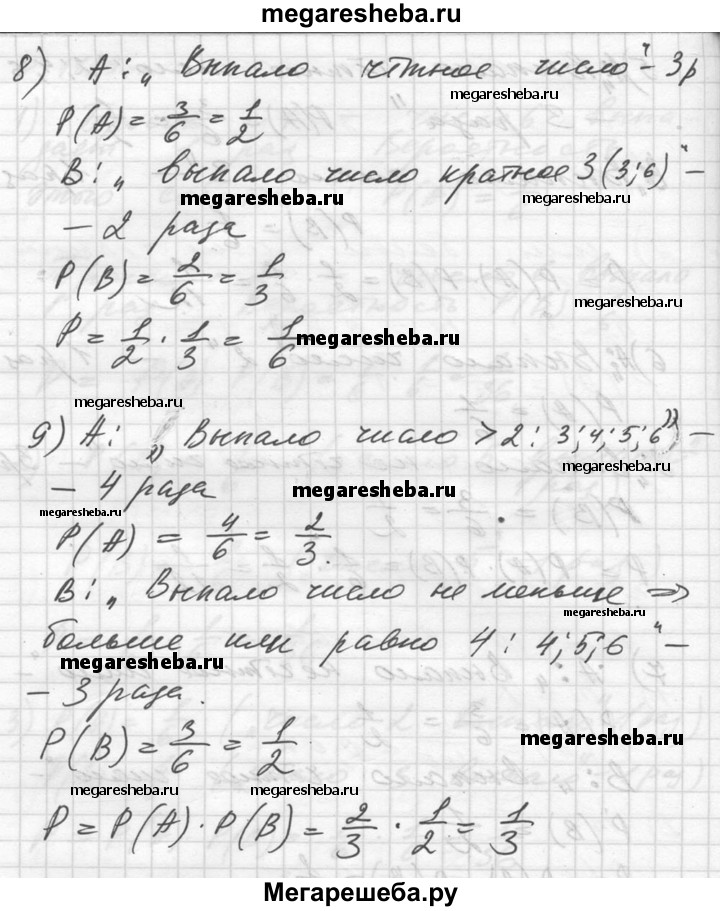 megaresheba.ru
8) A: „ Выпало чётное число “ – 3р
megaresheba.ru
P(A) = 3/6 = 1/2
B: „ выпало число кратное 3 (3; 6) “ –
megaresheba.ru megaresheba.ru
– 2 раза
P(B) = 2/6 = 1/3
megaresheba.ru
P = 1/2 · 1/3 = 1/6
megaresheba.ru
megaresheba.ru
9) A: „ Выпало число > 2: 3; 4; 5; 6 ” –
– 4 раза
megaresheba.ru megaresheba.ru
megaresheba.ru
P(A) = 4/6 = 2/3.
B: „ Выпало число не меньше ⇒
megaresheba.ru
больше или равно 4: 4; 5; 6 “ –
megaresheba.ru
– 3 раза.
P(B) = 3/6 = 1/2.
megaresheba.ru
megaresheba.ru megaresheba.ru
P = P(A) · P(B) = 2/3 · 1/2 = 1/3
Мегарешеба.ру